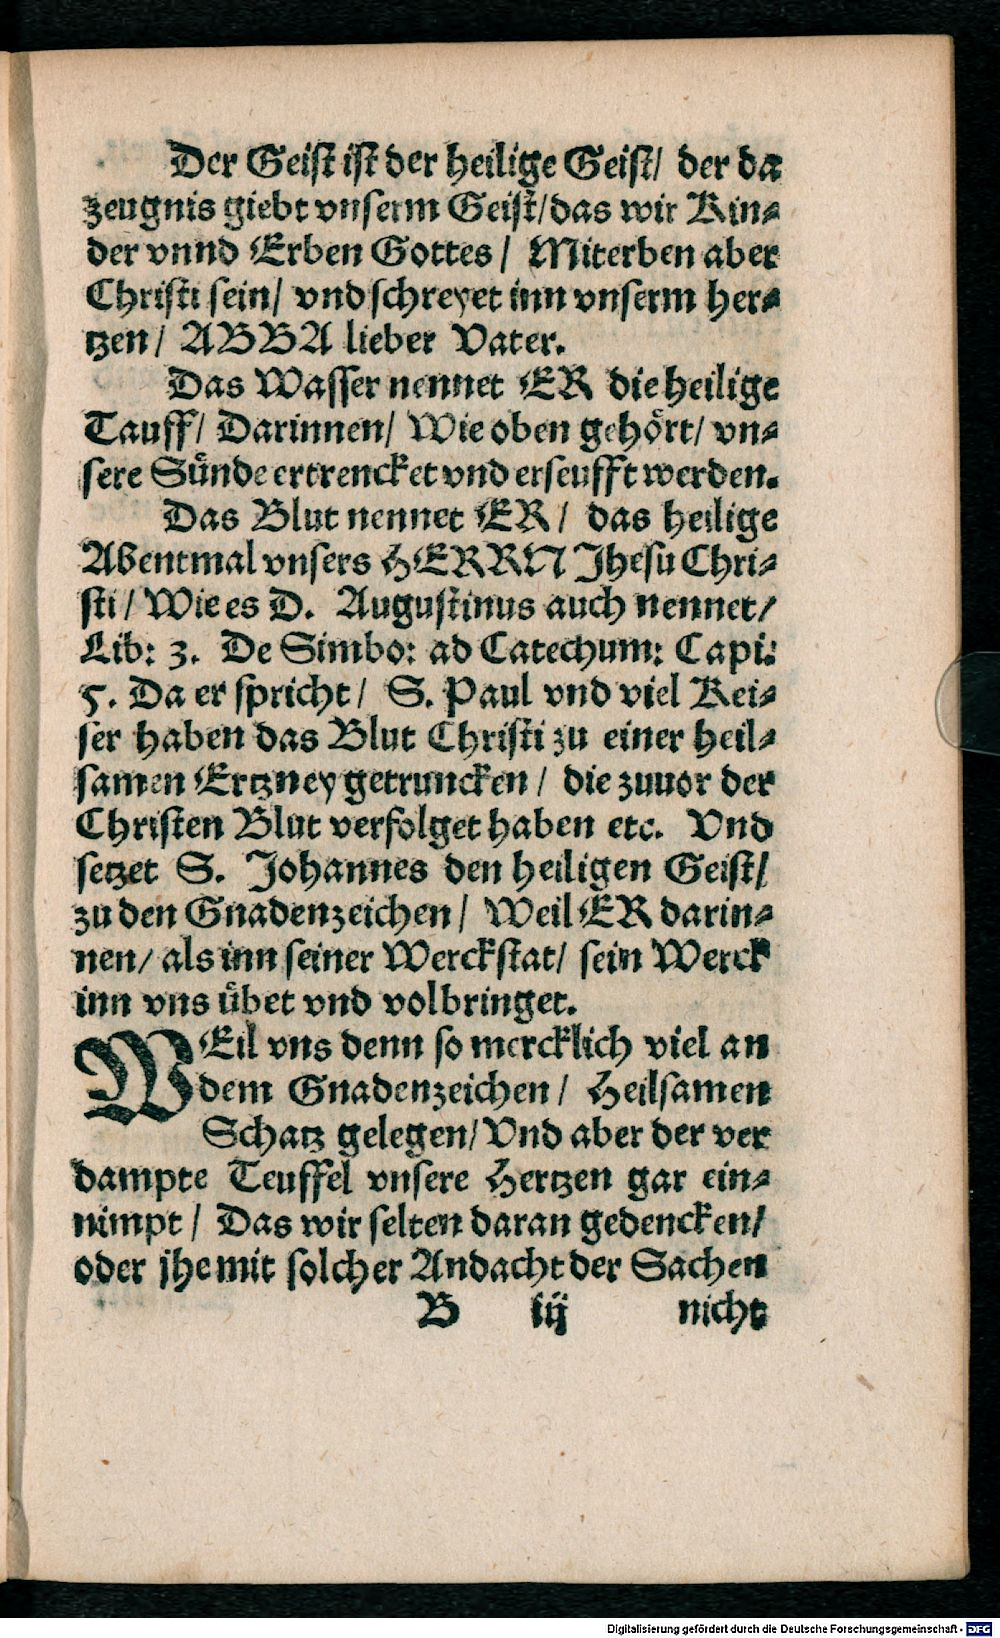 Der Geist ist der heilige Geist/ der da
zeugnis giebt vnserm Geist/das wir Kin⸗
der vnnd Erben Gottes / Miterben aber
Christi sein/ vnd schreyet inn vnserm her⸗
tzen/ ABBA lieber Vater.
Das Wasser nennet ER die heilige
Tauff/ Darinnen/ Wie oben gehöͤrt/ vn⸗
sere Suͤnde ertrencket vnd erseufft werden.
Das Blut nennet ER / das heilige
Abentmal vnsers HERRN Jhesu Chri⸗
sti / Wie es D. Augustinus auch nennet/
Lib: 3. De Simbo: ad Catechum: Capi:
5. Da er spricht/ S. Paul vnd viel Kei⸗
ser haben das Blut Christi zu einer heil⸗
samen Ertzney getruncken / die zuuor der
Christen Blut verfolget haben etc. Vnd
setzet S. Johannes den heiligen Geist/
zu den Gnadenzeichen / Weil ER darin⸗
nen/ als inn seiner Werckstat/ sein Werck
inn vns uͤbet vnd volbringet.
WEil vns denn so mercklich viel an
dem Gnadenzeichen / Heilsamen
Schatz gelegen/ Vnd aber der ver
dampte Teuffel vnsere Hertzen gar ein⸗
nimpt / Das wir selten daran gedencken/
oder jhe mit solcher Andacht der Sachen
B iij nicht
Digitalisierung gefördert durch die Deutsche Forschungsgemeinschaft - DFG